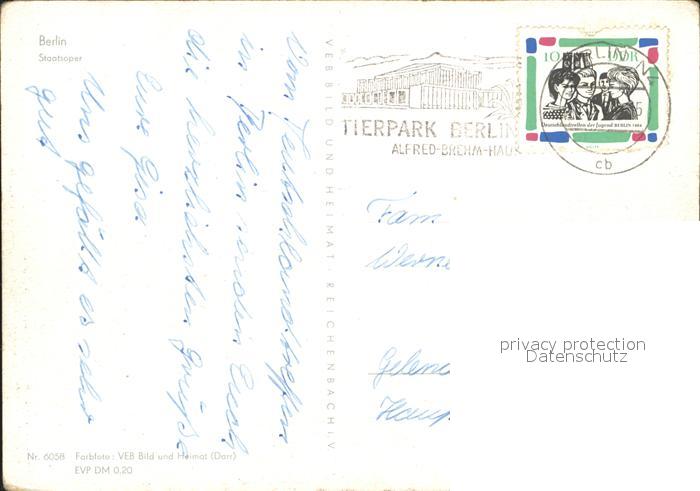 Berlin
Staatsoper
Vom Deutschlandtreffen
in Berlin senden Euch
die herzlichsten Grüße
Eure Gisa.
Uns gefällt es sehr
gut
VEB BILD UND HEIMAT · REICHENBACH I. V.
TIERPARK BERLIN
ALFRED-BREHM-HAUS
10 DDR
Deutschlandtreffen der Jugend BERLIN 1964
BERLIN
cb
Fam
Werne
Gelenc
Haup
privacy protection
Datenschutz
Nr. 6058 Farbfoto: VEB Bild und Heimat (Darr)
EVP DM 0,20